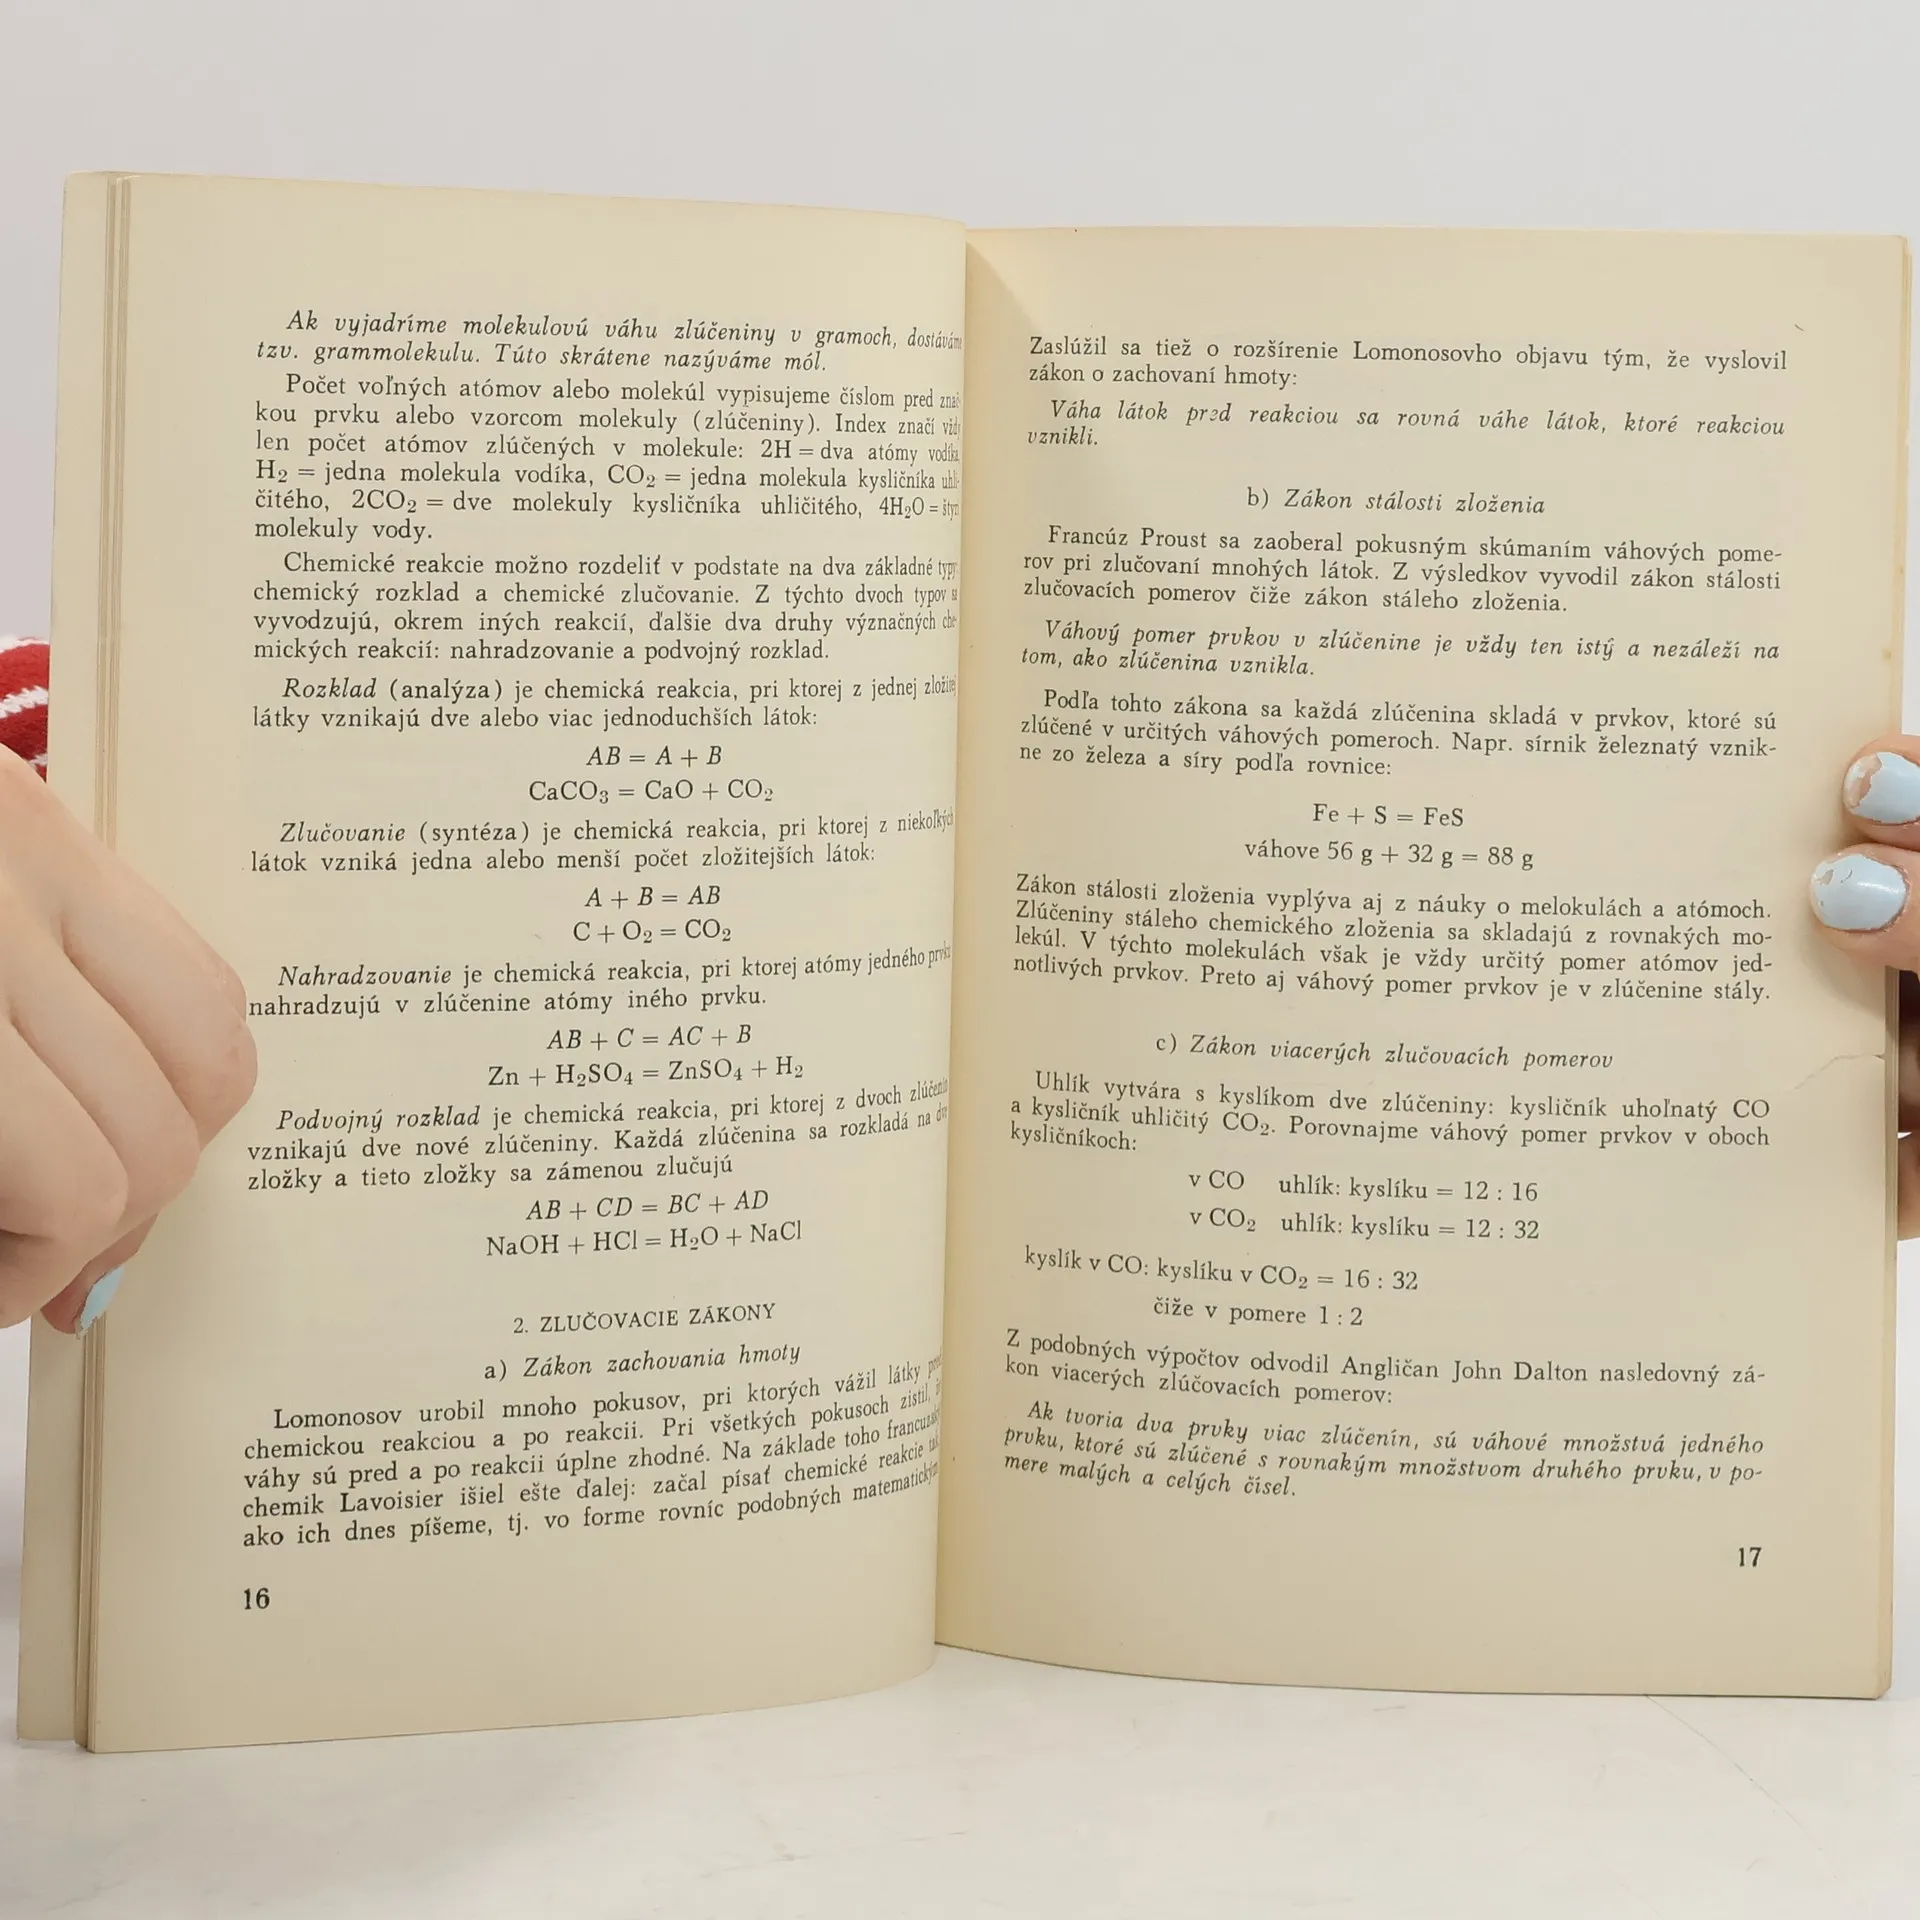 Ak vyjadríme molekulovú váhu zlúčeniny v gramoch, dostávame
tzv. grammolekulu. Túto skrátene nazýváme mól.
Počet voľných atómov alebo molekúl vypisujeme číslom pred znač-
kou prvku alebo vzorcom molekuly (zlúčeniny). Index značí vždy
len počet atómov zlúčených v molekule: 2H = dva atómy vodíka,
H₂ = jedna molekula vodíka, CO₂ = jedna molekula kysličníka uhli-
čitého, 2CO₂ = dve molekuly kysličníka uhličitého, 4H₂O = štyri
molekuly vody.
Chemické reakcie možno rozdeliť v podstate na dva základné typy:
chemický rozklad a chemické zlučovanie. Z týchto dvoch typov sa
vyvodzujú, okrem iných reakcií, ďalšie dva druhy význačných che-
mických reakcií: nahradzovanie a podvojný rozklad.
Rozklad (analýza) je chemická reakcia, pri ktorej z jednej zložitej
látky vznikajú dve alebo viac jednoduchších látok:
AB = A + B
CaCO₃ = CaO + CO₂
Zlučovanie (syntéza) je chemická reakcia, pri ktorej z niekoľkých
látok vzniká jedna alebo menší počet zložitejších látok:
A + B = AB
C + O₂ = CO₂
Nahradzovanie je chemická reakcia, pri ktorej atómy jedného prvku
nahradzujú v zlúčenine atómy iného prvku.
AB + C = AC + B
Zn + H₂SO₄ = ZnSO₄ + H₂
Podvojný rozklad je chemická reakcia, pri ktorej z dvoch zlúčenín
vznikajú dve nové zlúčeniny. Každá zlúčenina sa rozkladá na dve
zložky a tieto zložky sa zámenou zlučujú
AB + CD = BC + AD
NaOH + HCl = H₂O + NaCl
2. ZLUČOVACIE ZÁKONY
a) Zákon zachovania hmoty
Lomonosov urobil mnoho pokusov, pri ktorých vážil látky pred
chemickou reakciou a po reakcii. Pri všetkých pokusoch zistil, že
váhy sú pred a po reakcii úplne zhodné. Na základe toho francuzský
chemik Lavoisier išiel ešte ďalej: začal písať chemické reakcie tak,
ako ich dnes píšeme, tj. vo forme rovníc podobných matematickým
16
Zaslúžil sa tiež o rozšírenie Lomonosovho objavu tým, že vyslovil
zákon o zachovaní hmoty:
Váha látok pred reakciou sa rovná váhe látok, ktoré reakciou
vznikli.
b) Zákon stálosti zloženia
Francúz Proust sa zaoberal pokusným skúmaním váhových pome-
rov pri zlučovaní mnohých látok. Z výsledkov vyvodil zákon stálosti
zlučovacích pomerov čiže zákon stáleho zloženia.
Váhový pomer prvkov v zlúčenine je vždy ten istý a nezáleží na
tom, ako zlúčenina vznikla.
Podľa tohto zákona sa každá zlúčenina skladá v prvkov, ktoré sú
zlúčené v určitých váhových pomeroch. Napr. sírnik železnatý vznik-
ne zo železa a síry podľa rovnice:
Fe + S = FeS
váhove 56 g + 32 g = 88 g
Zákon stálosti zloženia vyplýva aj z náuky o melokulách a atómoch.
Zlúčeniny stáleho chemického zloženia sa skladajú z rovnakých mo-
lekúl. V týchto molekulách však je vždy určitý pomer atómov jed-
notlivých prvkov. Preto aj váhový pomer prvkov je v zlúčenine stály.
c) Zákon viacerých zlučovacích pomerov
Uhlík vytvára s kyslíkom dve zlúčeniny: kysličník uhoľnatý CO
a kysličník uhličitý CO₂. Porovnajme váhový pomer prvkov v oboch
kysličníkoch:
v CO uhlík: kyslíku = 12 : 16
v CO₂ uhlík: kyslíku = 12 : 32
kyslík v CO: kyslíku v CO₂ = 16 : 32
čiže v pomere 1 : 2
Z podobných výpočtov odvodil Angličan John Dalton nasledovný zá-
kon viacerých zlúčovacích pomerov:
Ak tvoria dva prvky viac zlúčenín, sú váhové množstvá jedného
prvku, ktoré sú zlúčené s rovnakým množstvom druhého prvku, v po-
mere malých a celých čísel.
17